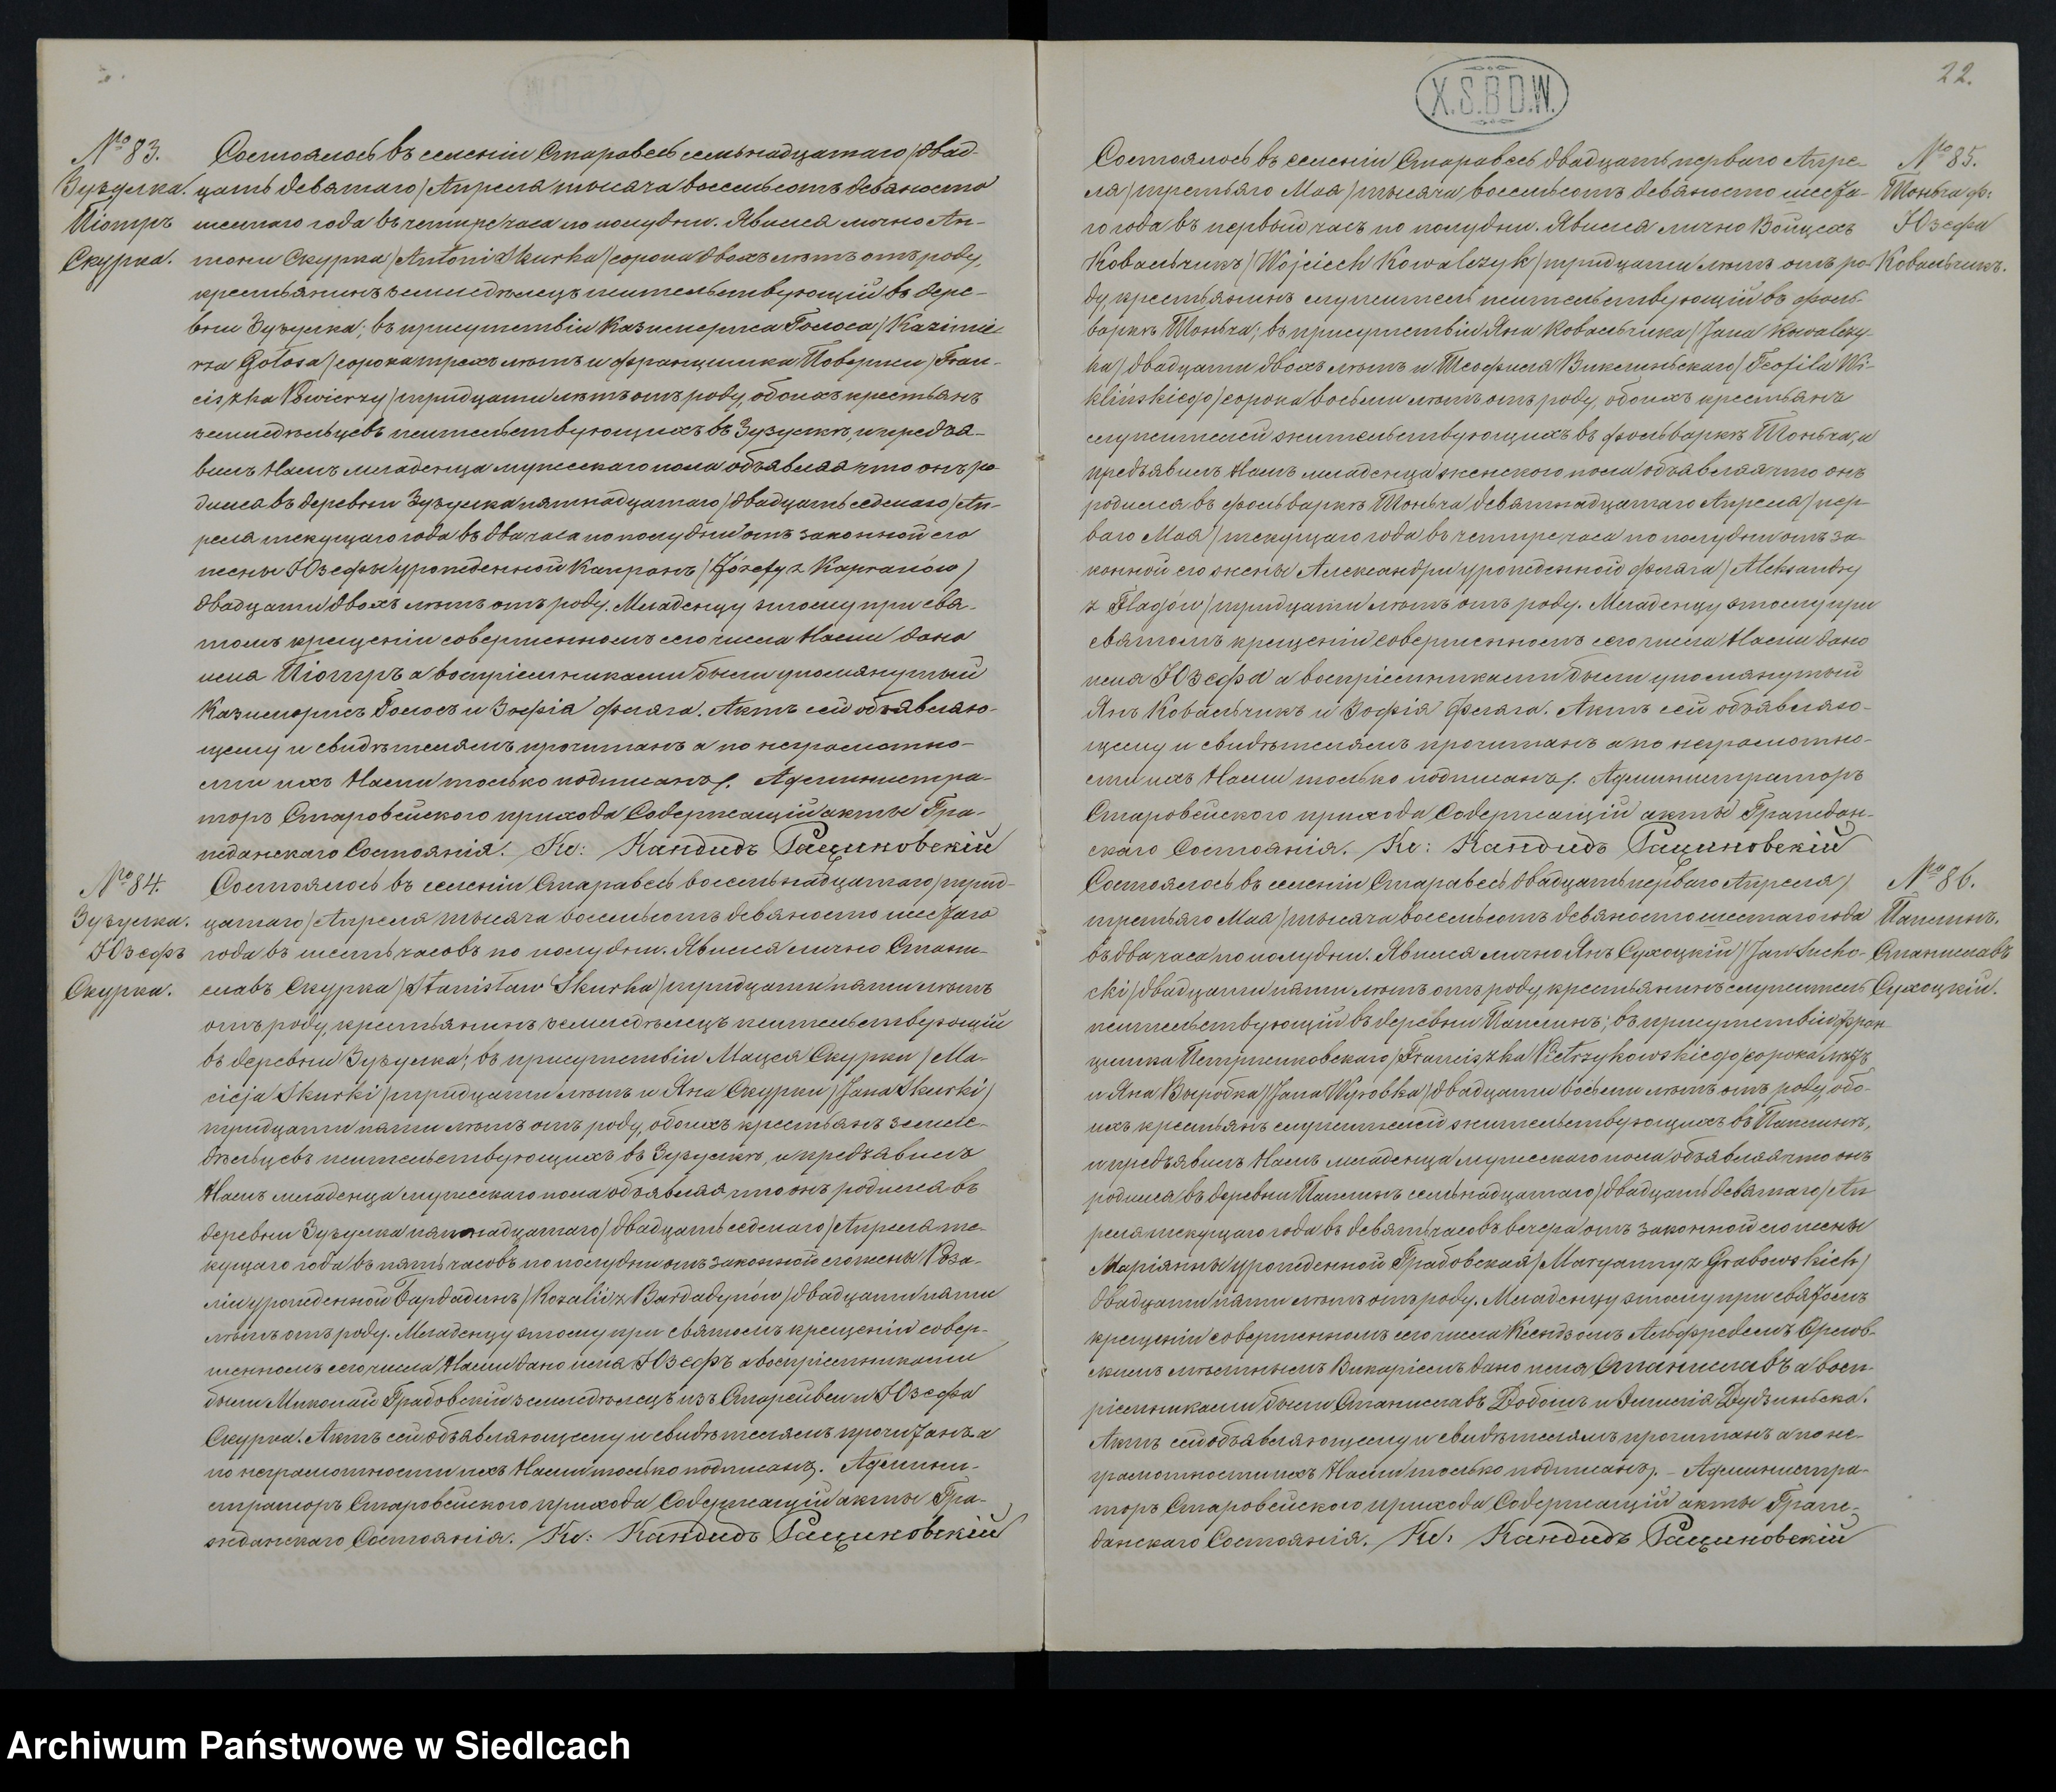 22.
X.S.B.D.W.
№ 83.
Зузулка.
Піотръ
Скурка.
Состоялось въ селеніи Стараве­сь семьнадцатаго /двад-
цать девятаго/ Апреля тысяча восемьсотъ девяносто
шестаго года въ четыре часа по полудни. Явился лично Ан-
тони Скурка /Antoni Skurka/ сорока двохъ летъ отъ роду,
крестьянинъ земледелецъ жительствующій въ дере-
вни Зузулка; въ присутствіи Казимержа Голоса /Kazimie-
rza Gołosa/ сорока трехъ летъ и Францишка Повержи /Fran-
ciszka Powierzy/ тридцати летъ отъ роду, обоихъ крестьянъ
земледельцевъ жительствующихъ въ Зузулке, и предъя-
вилъ Намъ младенца мужескаго пола объявляя что онъ ро-
дился въ деревни Зузулка пятнадцатаго /двадцать седьмаго/ Ап-
реля текущаго года въ два часа по полудни отъ законной его
жены Юзефы урожденной Капранъ /Józefy z Kapranów/
двадцати двохъ летъ отъ роду. Младенцу этому при свя-
томъ крещеніи совершенномъ сего числа Нами дано
имя Піотръ а воспріемниками были упомянутый
Казимержъ Голосъ и Зофія Фляга. Актъ сей объявляю-
щему и свидетелямъ прочитанъ а по неграмотно-
сти ихъ Нами только подписанъ. Администра-
торъ Старовейского прихода Содержащій акты Гра-
жданскаго Состоянія. Кс: Кандидъ Рациновскій
№ 84.
Зузулка.
Юзефъ
Скурка.
Состоялось въ селеніи Старавесь восемьнадцатаго /трид-
цатаго/ Апреля тысяча восемьсотъ девяносто шестаго
года въ шесть часовъ по полудни. Явился лично Стани-
славъ Скурка /Stanisław Skurka/ тридцати пяти летъ
отъ роду, крестьянинъ земледелецъ жительствующій
въ деревни Зузулка; въ присутствіи Мацея Скурки /Ma-
cieja Skurki/ тридцати летъ и Яна Скурки /Jana Skurki/
тридцати пяти летъ отъ роду, обоихъ крестьянъ земле-
дельцевъ жительствующихъ въ Зузулке, и предъявилъ
Намъ младенца мужескаго пола объявляя, что онъ родился въ
деревни Зузулка пятнадцатаго /двадцать седьмаго/ Апреля те-
кущаго года въ пять часовъ по полудни отъ законной его жены Роза-
ліи урожденной Бардадынъ /Rozalii z Bardadynów/ двадцати пяти
летъ отъ роду. Младенцу этому при святомъ крещеніи совер-
шенномъ сего числа Нами дано имя Юзефъ а воспріемниками
были Миколай Грабовскій земледелецъ изъ Старейвси и Юзефа
Скурка. Актъ сей объявляющему и свидетелямъ прочитанъ а
по неграмотности ихъ Нами только подписанъ. Админи-
страторъ Старовейского прихода Содержащій акты Гра-
жданскаго Состоянія. Кс: Кандидъ Рациновскій
№ 85.
Тоньча ф:
Юзефа
Ковальчикъ.
Состоялось въ селеніи Старавесь двадцать перваго Апре-
ля /третьяго Мая/ тысяча восемьсотъ девяносто шеста-
го года въ первый часъ по полудни. Явился лично Войцехъ
Ковальчикъ /Wojciech Kowalczyk/ тридцати летъ отъ ро-
ду крестьянинъ служитель жительствующій въ фоль-
варке Тоньча; въ присутствіи Яна Ковальчика /Jana Kowalczy-
ka/ двадцати двохъ летъ и Теофиля Виклиньскаго /Teofila Wi-
klińskiego/ сорока восьми летъ отъ роду, обоихъ крестьянъ
служителей жительствующихъ въ фольварке Тоньча, и
предъявилъ Намъ младенца женского пола объявляя что онъ
родился въ фольварке Тоньча девятнадцатаго Апреля /пер-
ваго Мая/ текущаго года въ четыре часа по полудни отъ за-
конной его жены Александры урожденной Фляга /Aleksandry
z Flagów/ тридцати летъ отъ роду. Младенцу этому при
святомъ крещеніи совершенномъ сего числа Нами дано
имя Юзефа а воспріемниками были упомянутый
Янъ Ковальчикъ и Зофія Фляга. Актъ сей объявляю-
щему и свидетелямъ прочитанъ а по неграмотно-
сти ихъ Нами только подписанъ. Администраторъ
Старовейского прихода Содержащій акты Граждан-
скаго Состоянія. Кс: Кандидъ Рациновскій
№ 86.
Паплинъ.
Станиславъ
Сухоцкій.
Состоялось въ селеніи Старавесь двадцать перваго Апреля /
третьяго Мая/ тысяча восемьсотъ девяносто шестаго года
въ два часа по полудни. Явился лично Янъ Сухоцкій /Jan Sucho-
cki/ двадцати пяти летъ отъ роду, крестьянинъ служитель
жительствующій въ деревни Паплинъ; въ присутствіи Фран-
цишка Петржиковскаго /Franciszka Pietrzykowskiego/ сорока летъ
и Яна Выробка /Jana Wyrobka/ двадцати восьми летъ отъ роду, обо-
ихъ крестьянъ служителей жительствующихъ въ Паплине,
и предъявилъ Намъ младенца мужескаго пола объявляя что онъ
родился въ деревни Паплинъ семьнадцатаго /двадцать девятаго/ Ап-
реля текущаго года въ девять часовъ вечера отъ законной его жены
Маріянны урожденной Грабовская /Maryanny z Grabowskich/
двадцати пяти летъ отъ роду. Младенцу этому при святомъ
крещеніи совершенномъ сего числа Ксендзомъ Альфредомъ Орлов-
скимъ местнымъ Викаріемъ дано имя Станиславъ а восп-
ріемниками были Станиславъ Добошъ и Эмилія Дудзиньска.
Актъ сей объявляющему и свидетелямъ прочитанъ а по не-
грамотности ихъ Нами только подписанъ. – Администра-
торъ Старовейского прихода Содержащій акты Граж-
данскаго Состоянія. Кс: Кандидъ Рациновскій
Archiwum Państwowe w Siedlcach